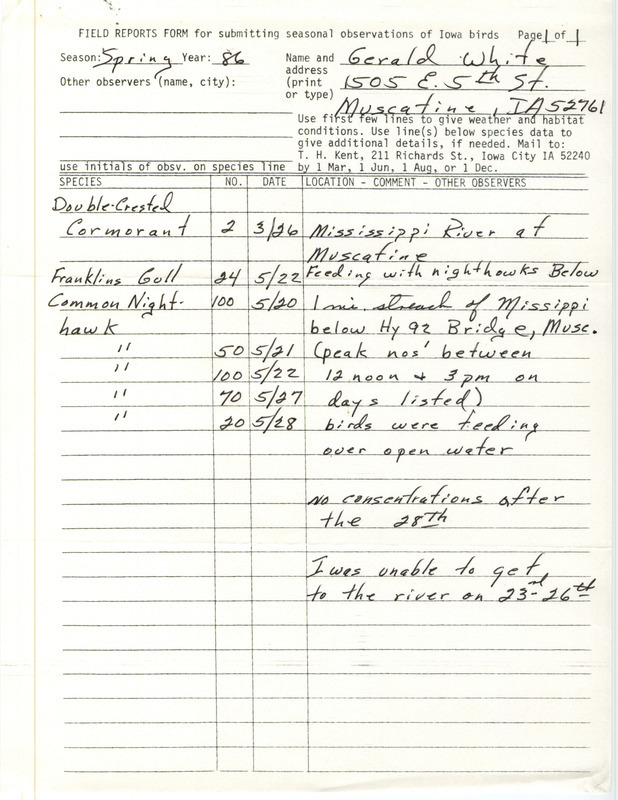 FIELD REPORTS FORM for submitting seasonal observations of Iowa birds Page 1 of 1
Season: Spring Year: 86 Name and Gerald White
address
Other observers (name, city): (print 1505 E. 5th St.
or type)
Muscatine, IA 52761
Use first few lines to give weather and habitat
conditions. Use line(s) below species data to
give additional details, if needed. Mail to:
T. H. Kent, 211 Richards St., Iowa City IA 52240
use initials of obsv. on species line by 1 Mar, 1 Jun, 1 Aug, or 1 Dec.
SPECIES NO. DATE LOCATION - COMMENT - OTHER OBSERVERS
Double-Crested
Cormorant 2 3/26 Mississippi River at
Muscatine
Franklins Gull 24 5/22 Feeding with nighthawks Below
Common Night- 100 5/20 1 mi. streach of Missippi
hawk below Hy 92 Bridge, Musc.
" 50 5/21 (peak nos' between
" 100 5/22 12 noon & 3 pm on
" 70 5/27 days listed)
" 20 5/28 birds were feeding
over open water
No concentrations after
the 28th
I was unable to get
to the river on 23rd-26th